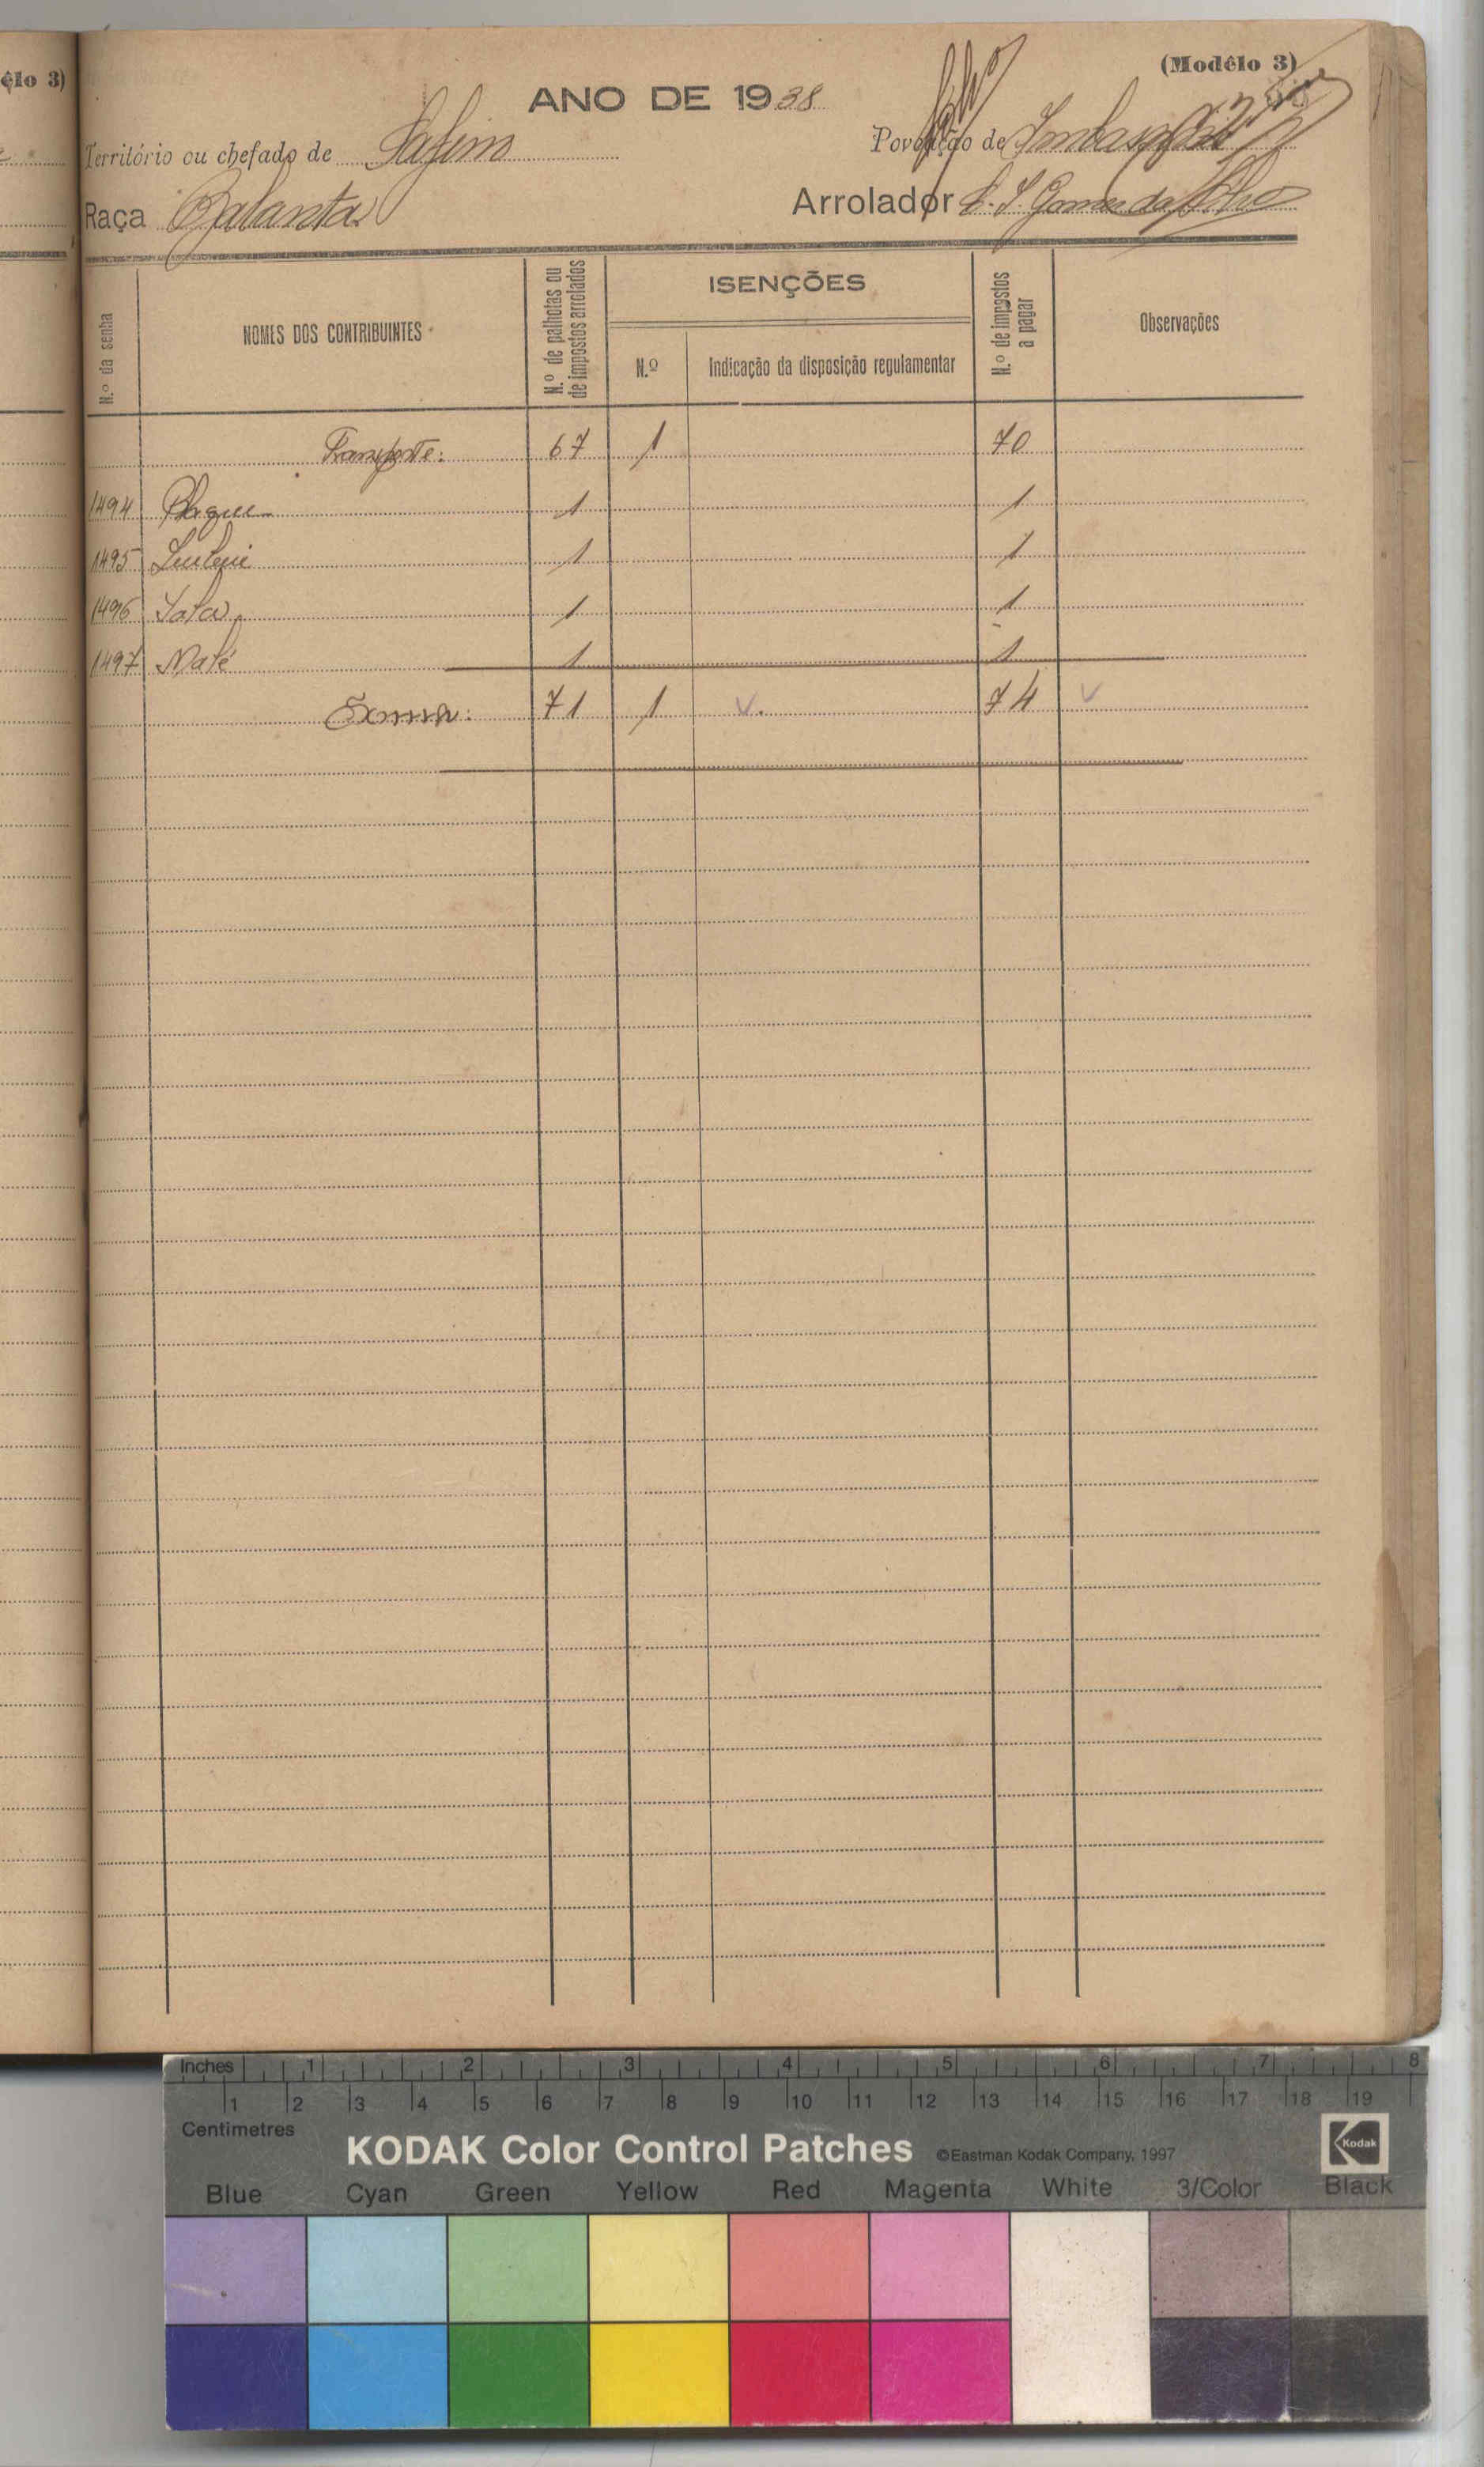 êlo 3)
(Modêlo 3)
ANO DE 1938
Território ou chefado de Safim
Povoação de
Raça Balanta
Arrolador
N.º da senha
NOMES DOS CONTRIBUINTES
N.º de palhotas ou de impostos arrolados
ISENÇÕES
N.º
Indicação da disposição regulamentar
N.º de impostos a pagar
Observações
Transporte: 67 1 70
1494 1 1
1495 1 1
1496 1 1
1497 Malé 1 1
Soma: 71 1 v. 74 v
Inches 1 2 3 4 5 6 7 8
1 2 3 4 5 6 7 8 9 10 11 12 13 14 15 16 17 18 19
Centimetres
KODAK Color Control Patches ©Eastman Kodak Company, 1997 Kodak
Blue Cyan Green Yellow Red Magenta White 3/Color Black